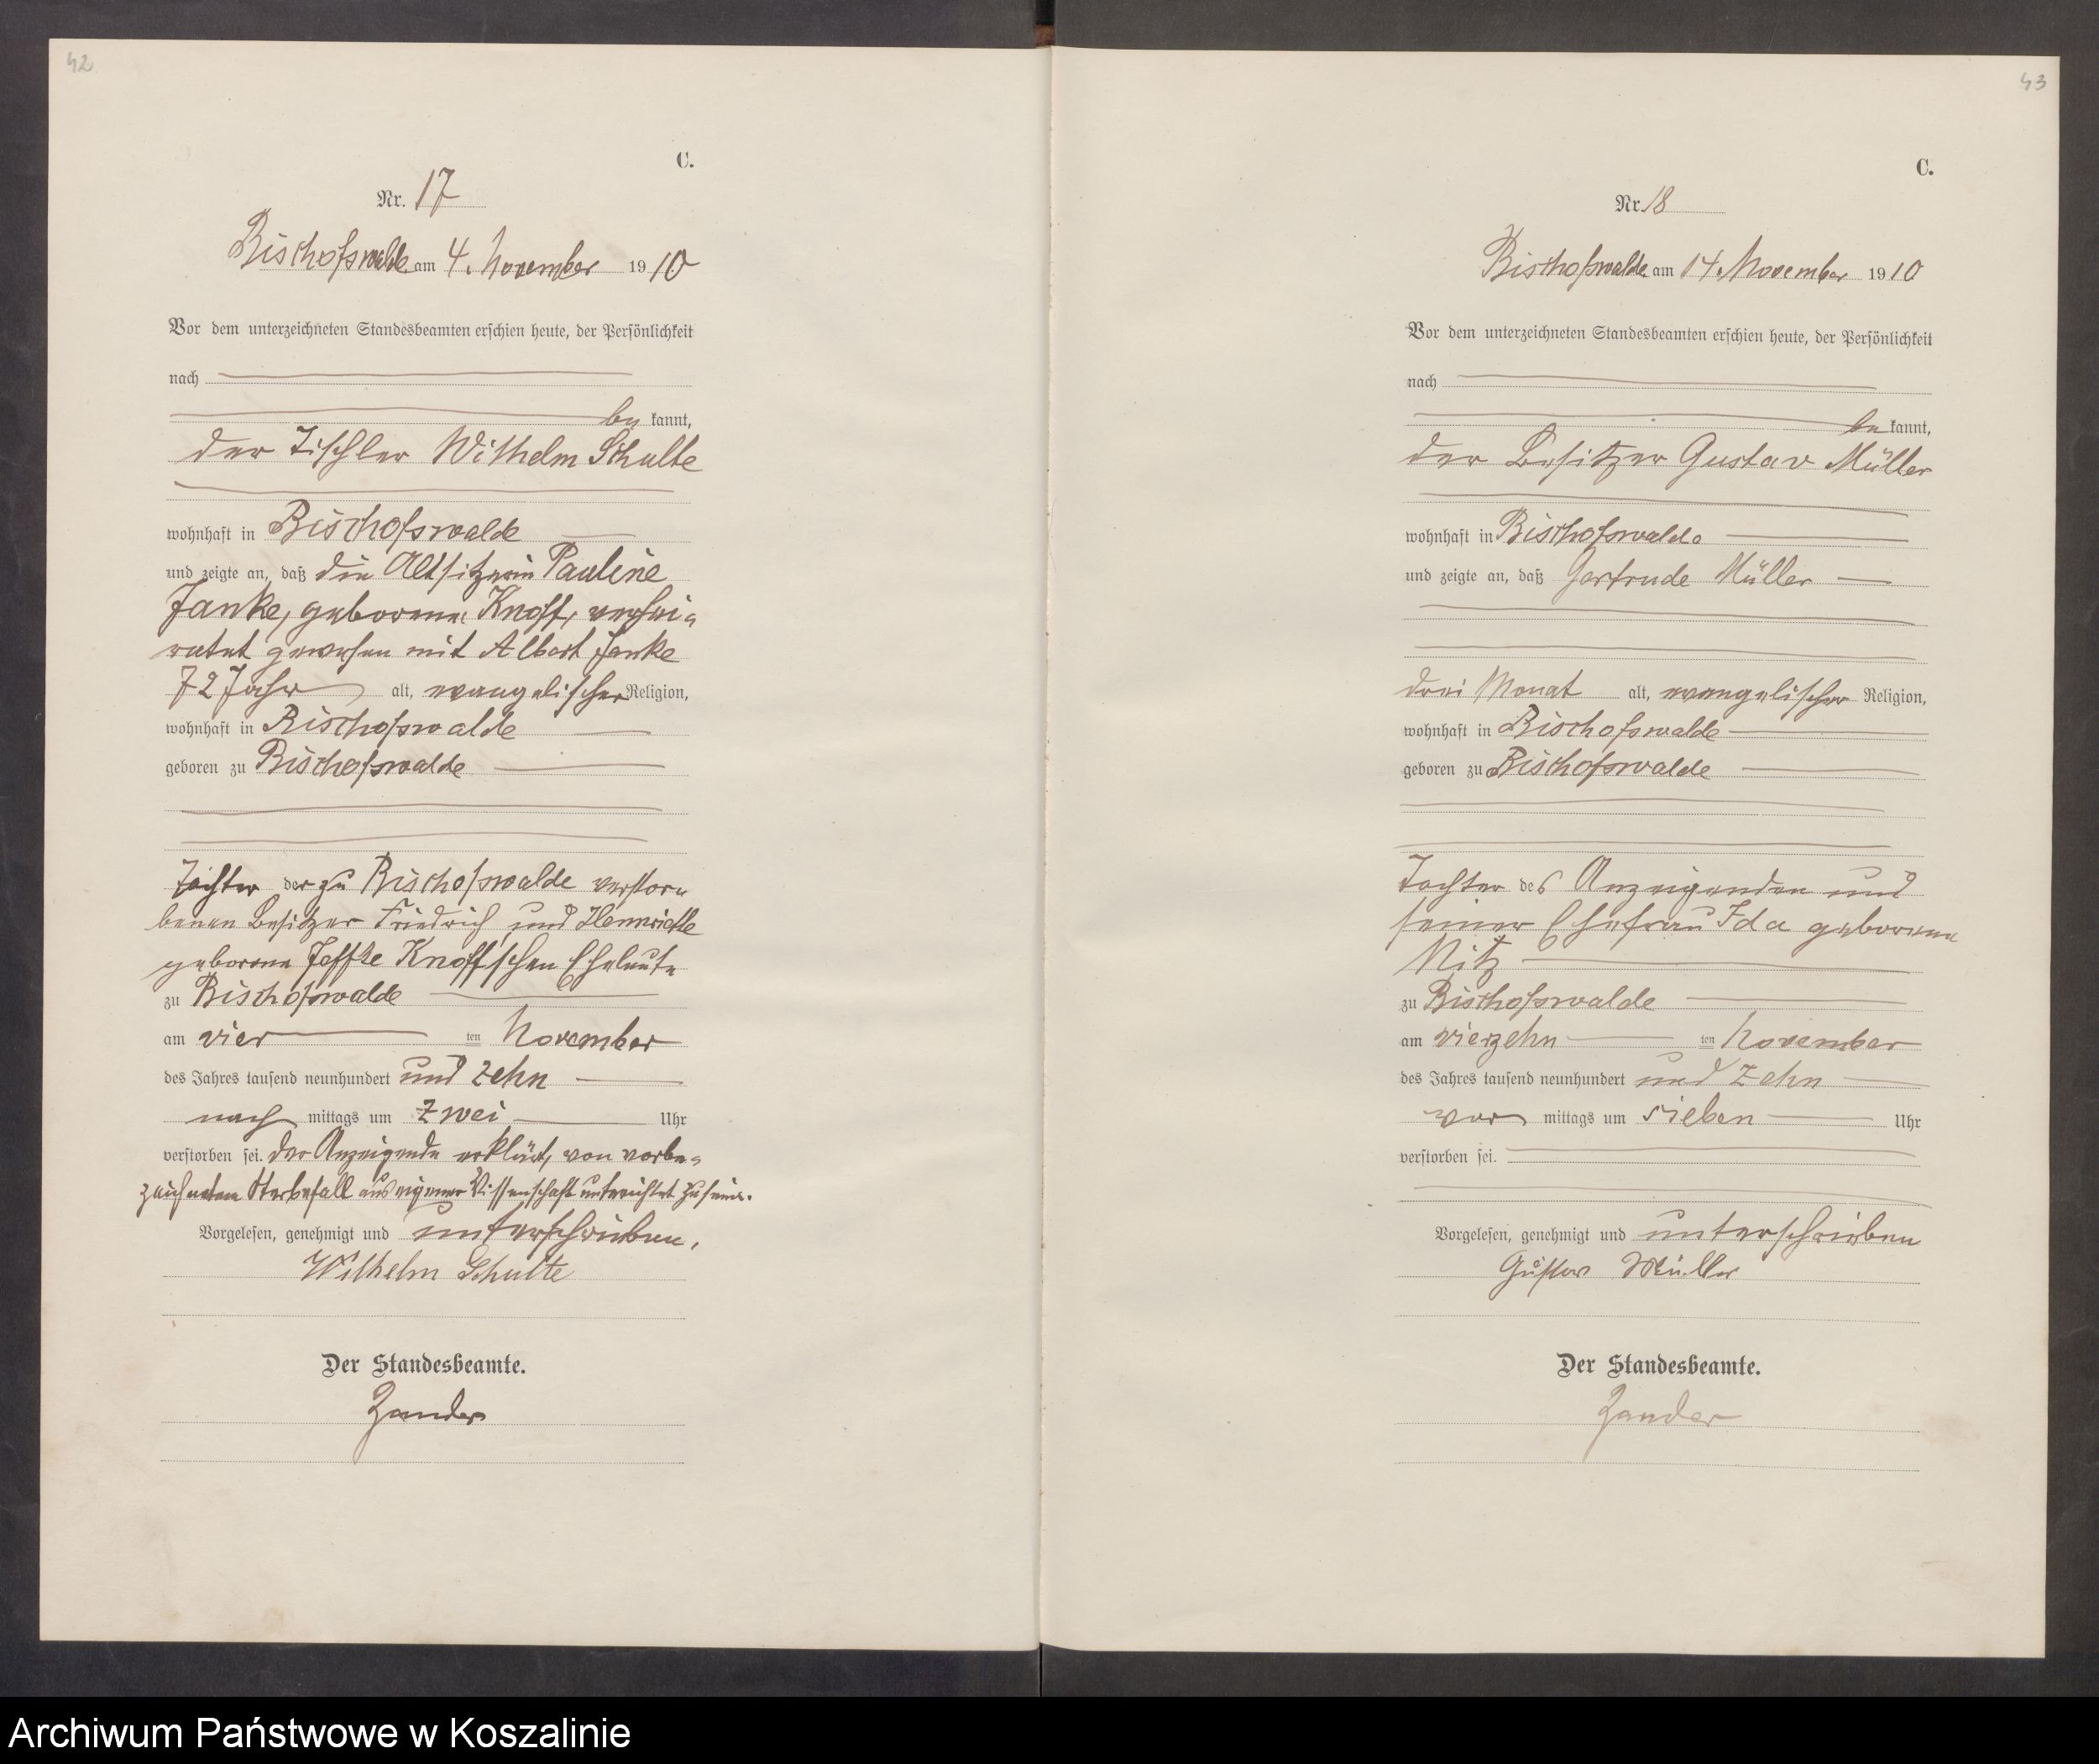 42
C.
Nr. 17
Bischofswalde am 4. November 1910
Vor dem unterzeichneten Standesbeamten erschien heute, der Persönlichkeit
nach
be kannt,
der Tischler Wilhelm Schulte
wohnhaft in Bischofswalde
und zeigte an, daß die Altsitzerin Pauline
Janke, geborene Knoff, verhei-
ratet gewesen mit Albert Janke
72 Jahr alt, evangelischer Religion,
wohnhaft in Bischofswalde
geboren zu Bischofswalde
Tochter der zu Bischofswalde verstor-
benen Besitzer Friedrich und Henriette
geborene Knoff'schen Eheleute
zu Bischofswalde
am vier ten November
des Jahres tausend neunhundert und zehn
nach mittags um zwei Uhr
verstorben sei. Der Anzeigende erklärt, von vorbe-
zeichneten Sterbefall aus eigener Wissenschaft unterrichtet zu sein.
Vorgelesen, genehmigt und unterschrieben.
Wilhelm Schulte
Der Standesbeamte.
Zander
43
C.
Nr. 18
Bischofswalde am 14. November 1910
Vor dem unterzeichneten Standesbeamten erschien heute, der Persönlichkeit
nach
be kannt,
der Besitzer Gustav Müller
wohnhaft in Bischofswalde
und zeigte an, daß Gertrude Müller
drei Monat alt, evangelischer Religion,
wohnhaft in Bischofswalde
geboren zu Bischofswalde
Tochter des Anzeigenden und
seiner Ehefrau Ida geborene
Nitz
zu Bischofswalde
am vierzehn ten November
des Jahres tausend neunhundert und zehn
vor mittags um sieben Uhr
verstorben sei.
Vorgelesen, genehmigt und unterschrieben
Gustav Müller
Der Standesbeamte.
Zander
Archiwum Państwowe w Koszalinie